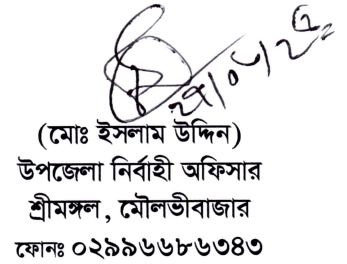 (মোঃ ইসলাম উদ্দিন)
উপজেলা নির্বাহী অফিসার
শ্রীমঙ্গল, মৌলভীবাজার
ফোনঃ ০২৯৯৬৬৮৬৩৪৩